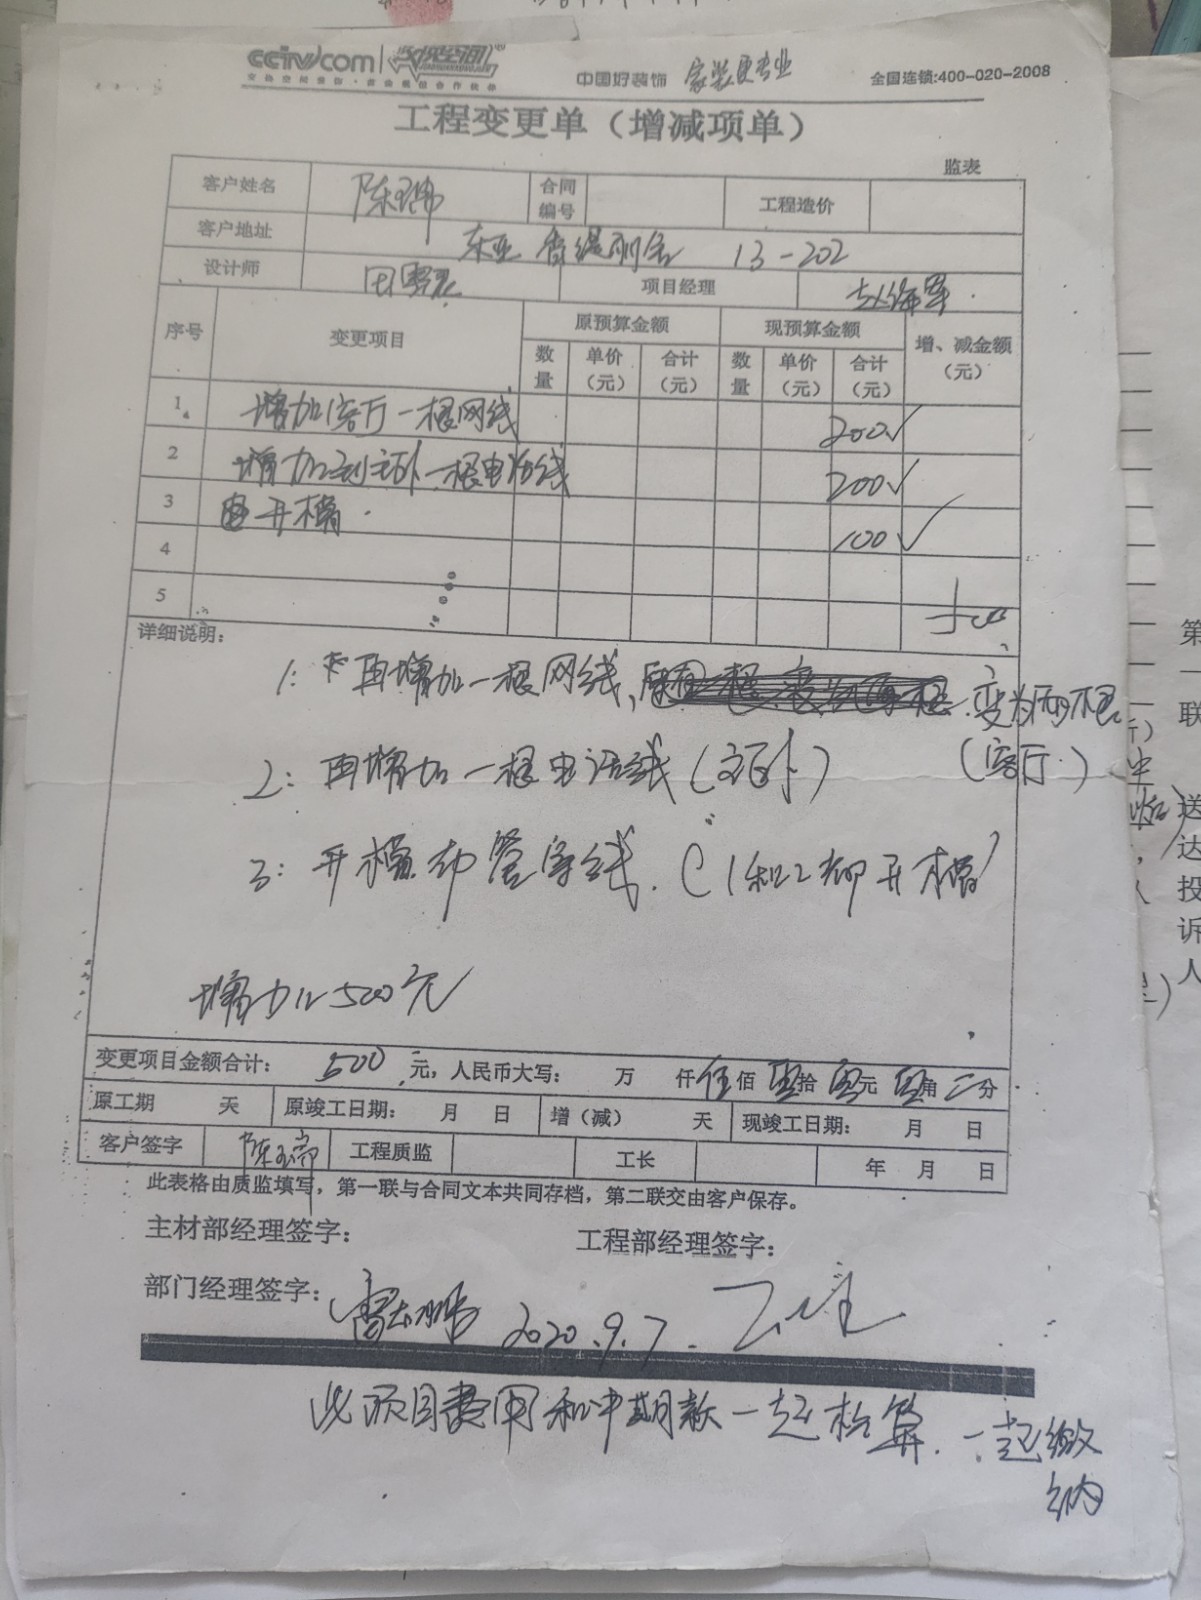 cctv.com 交换空间
中国好装饰 家装更专业 全国连锁:400-020-2008
工程变更单（增减项单）
监表
客户姓名 合同编号 工程造价
客户地址 东亚 香缇丽舍 13-202
设计师 项目经理
序号 变更项目 原预算金额 现预算金额 增、减金额（元）
数量 单价（元） 合计（元） 数量 单价（元） 合计（元）
1 增加客厅一根网线 200
2 增加到主卧一根电话线 200
3 开槽 100
4
5 500
详细说明：
1: 再增加一根网线, 变为两根
2: 再增加一根电话线（主卧） （客厅）
3: 开槽布管穿线.（1和2都开槽）
增加500元
变更项目金额合计： 500 元，人民币大写： 万 仟 伍 佰 拾 元 角 分
原工期 天 原竣工日期： 月 日 增（减） 天 现竣工日期： 月 日
客户签字 工程质监 工长 年 月 日
此表格由质监填写，第一联与合同文本共同存档，第二联交由客户保存。
主材部经理签字： 工程部经理签字：
部门经理签字： 2020.9.7
此项目费用和中期款一起核算.一起缴
纳
第
一
联
送
达
投
诉
人